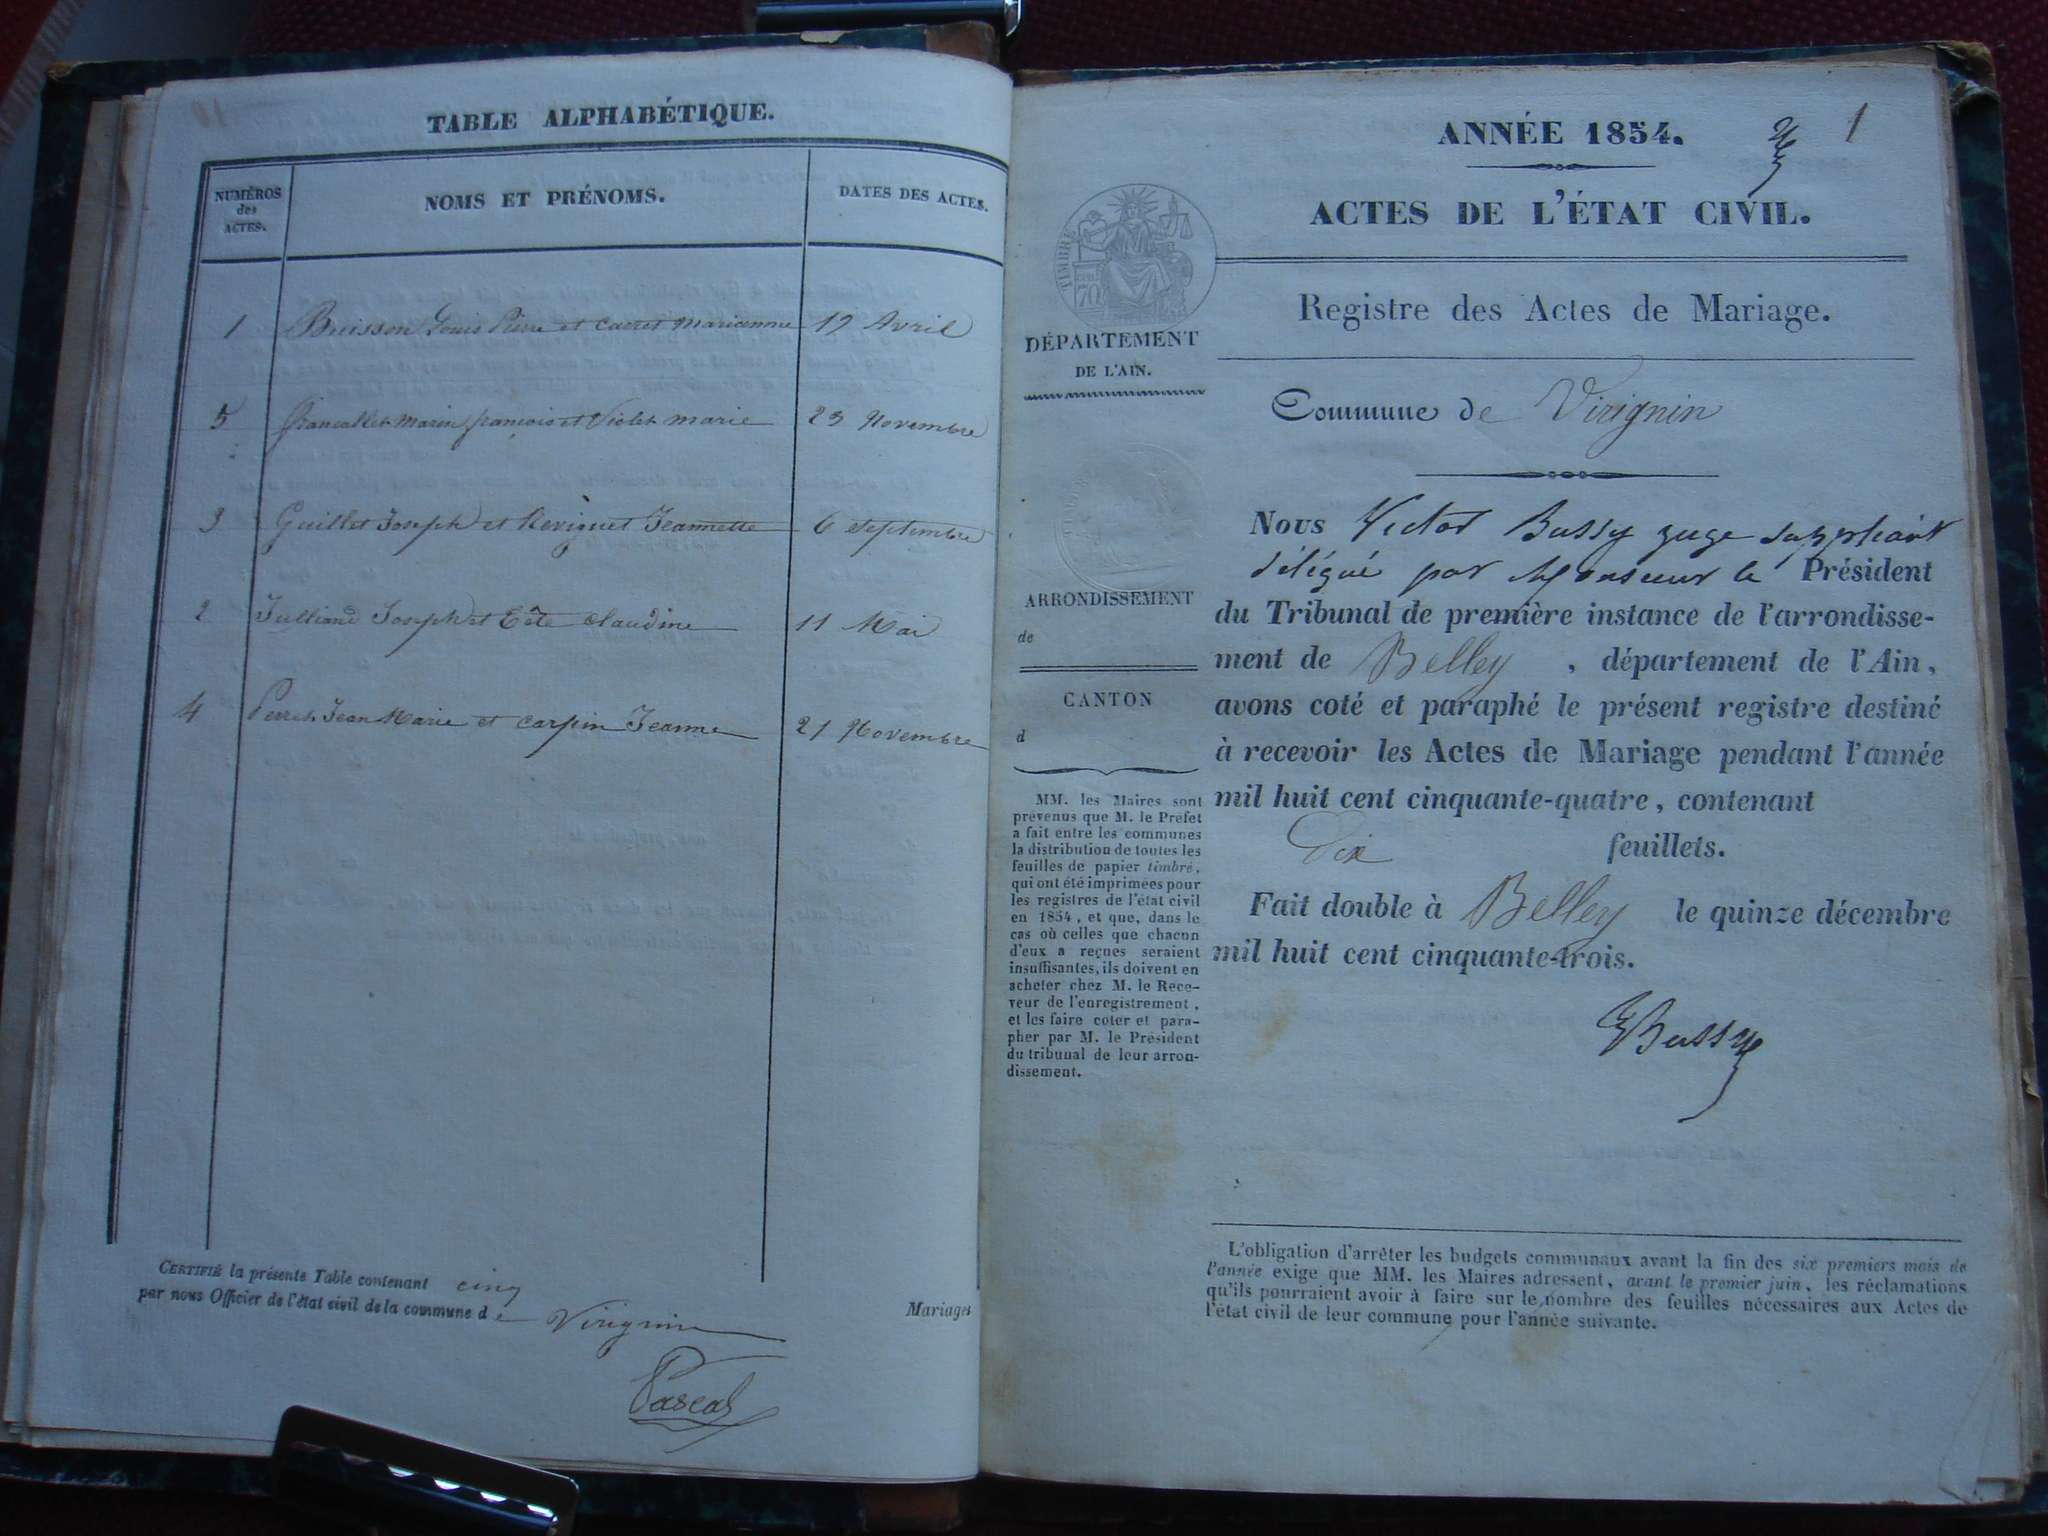 TABLE ALPHABÉTIQUE.
NUMÉROS des ACTES.
NOMS ET PRÉNOMS.
DATES DES ACTES.
1 Buisson Louis Pierre et Carret Marianne 17 Avril
5 francallet Marin françois et Violet marie 23 Novembre
3 Guillet Joseph et Reviguet Jeannette 6 septembre
2 Julliand Joseph et Tête claudine 11 Mai
4 Perret Jean Marie et carpin Jeanne 21 Novembre
CERTIFIÉ la présente Table contenant cinq Mariages
par nous Officier de l'état civil de la commune de Virignin
Pascal
1
ANNÉE 1854.
ACTES DE L'ÉTAT CIVIL.
Registre des Actes de Mariage.
TIMBRE
70
DÉPARTEMENT
DE L'AIN.
ARRONDISSEMENT
de
CANTON
d
MM. les Maires sont
prévenus que M. le Préfet
a fait entre les communes
la distribution de toutes les
feuilles de papier timbré,
qui ont été imprimées pour
les registres de l'état civil
en 1854, et que, dans le
cas où celles que chacun
d'eux a reçues seraient
insuffisantes, ils doivent en
acheter chez M. le Rece-
veur de l'enregistrement,
et les faire coter et para-
pher par M. le Président
du tribunal de leur arron-
dissement.
Commune de Virignin
Nous Victor Bussy juge suppléant
délégué par Monsieur le Président
du Tribunal de première instance de l'arrondisse-
ment de Belley, département de l'Ain,
avons coté et paraphé le présent registre destiné
à recevoir les Actes de Mariage pendant l'année
mil huit cent cinquante-quatre, contenant
Dix feuillets.
Fait double à Belley le quinze décembre
mil huit cent cinquante-trois.
VBussy
L'obligation d'arrêter les budgets communaux avant la fin des six premiers mois de
l'année exige que MM. les Maires adressent, avant le premier juin, les réclamations
qu'ils pourraient avoir à faire sur le nombre des feuilles nécessaires aux Actes de
l'état civil de leur commune pour l'année suivante.